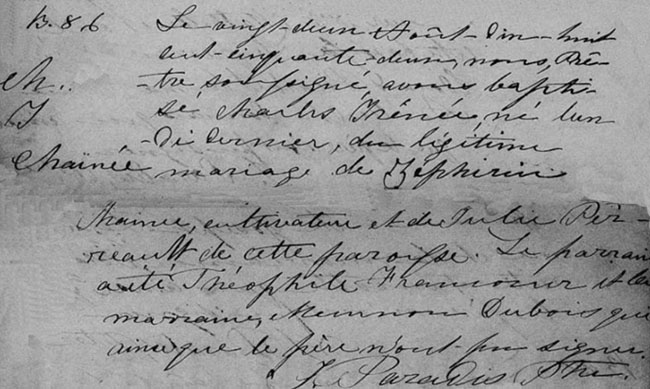 B. 86
Ch.
J
Chaînée
Le vingt-deux Août dix-huit
cent-cinquante-deux, nous, Prê-
-tre soussigné, avons bapti-
sé Charles Irénée, né lun-
-di dernier, du légitime
mariage de Zéphirin
Chainée, cultivateur et de Julie Per-
reault de cette paroisse. Le parrain
a été Théophile Francoeur et la
marraine, Dubois qui
ainsi que le père n'ont pu signer.
J. Paradis Ptre.